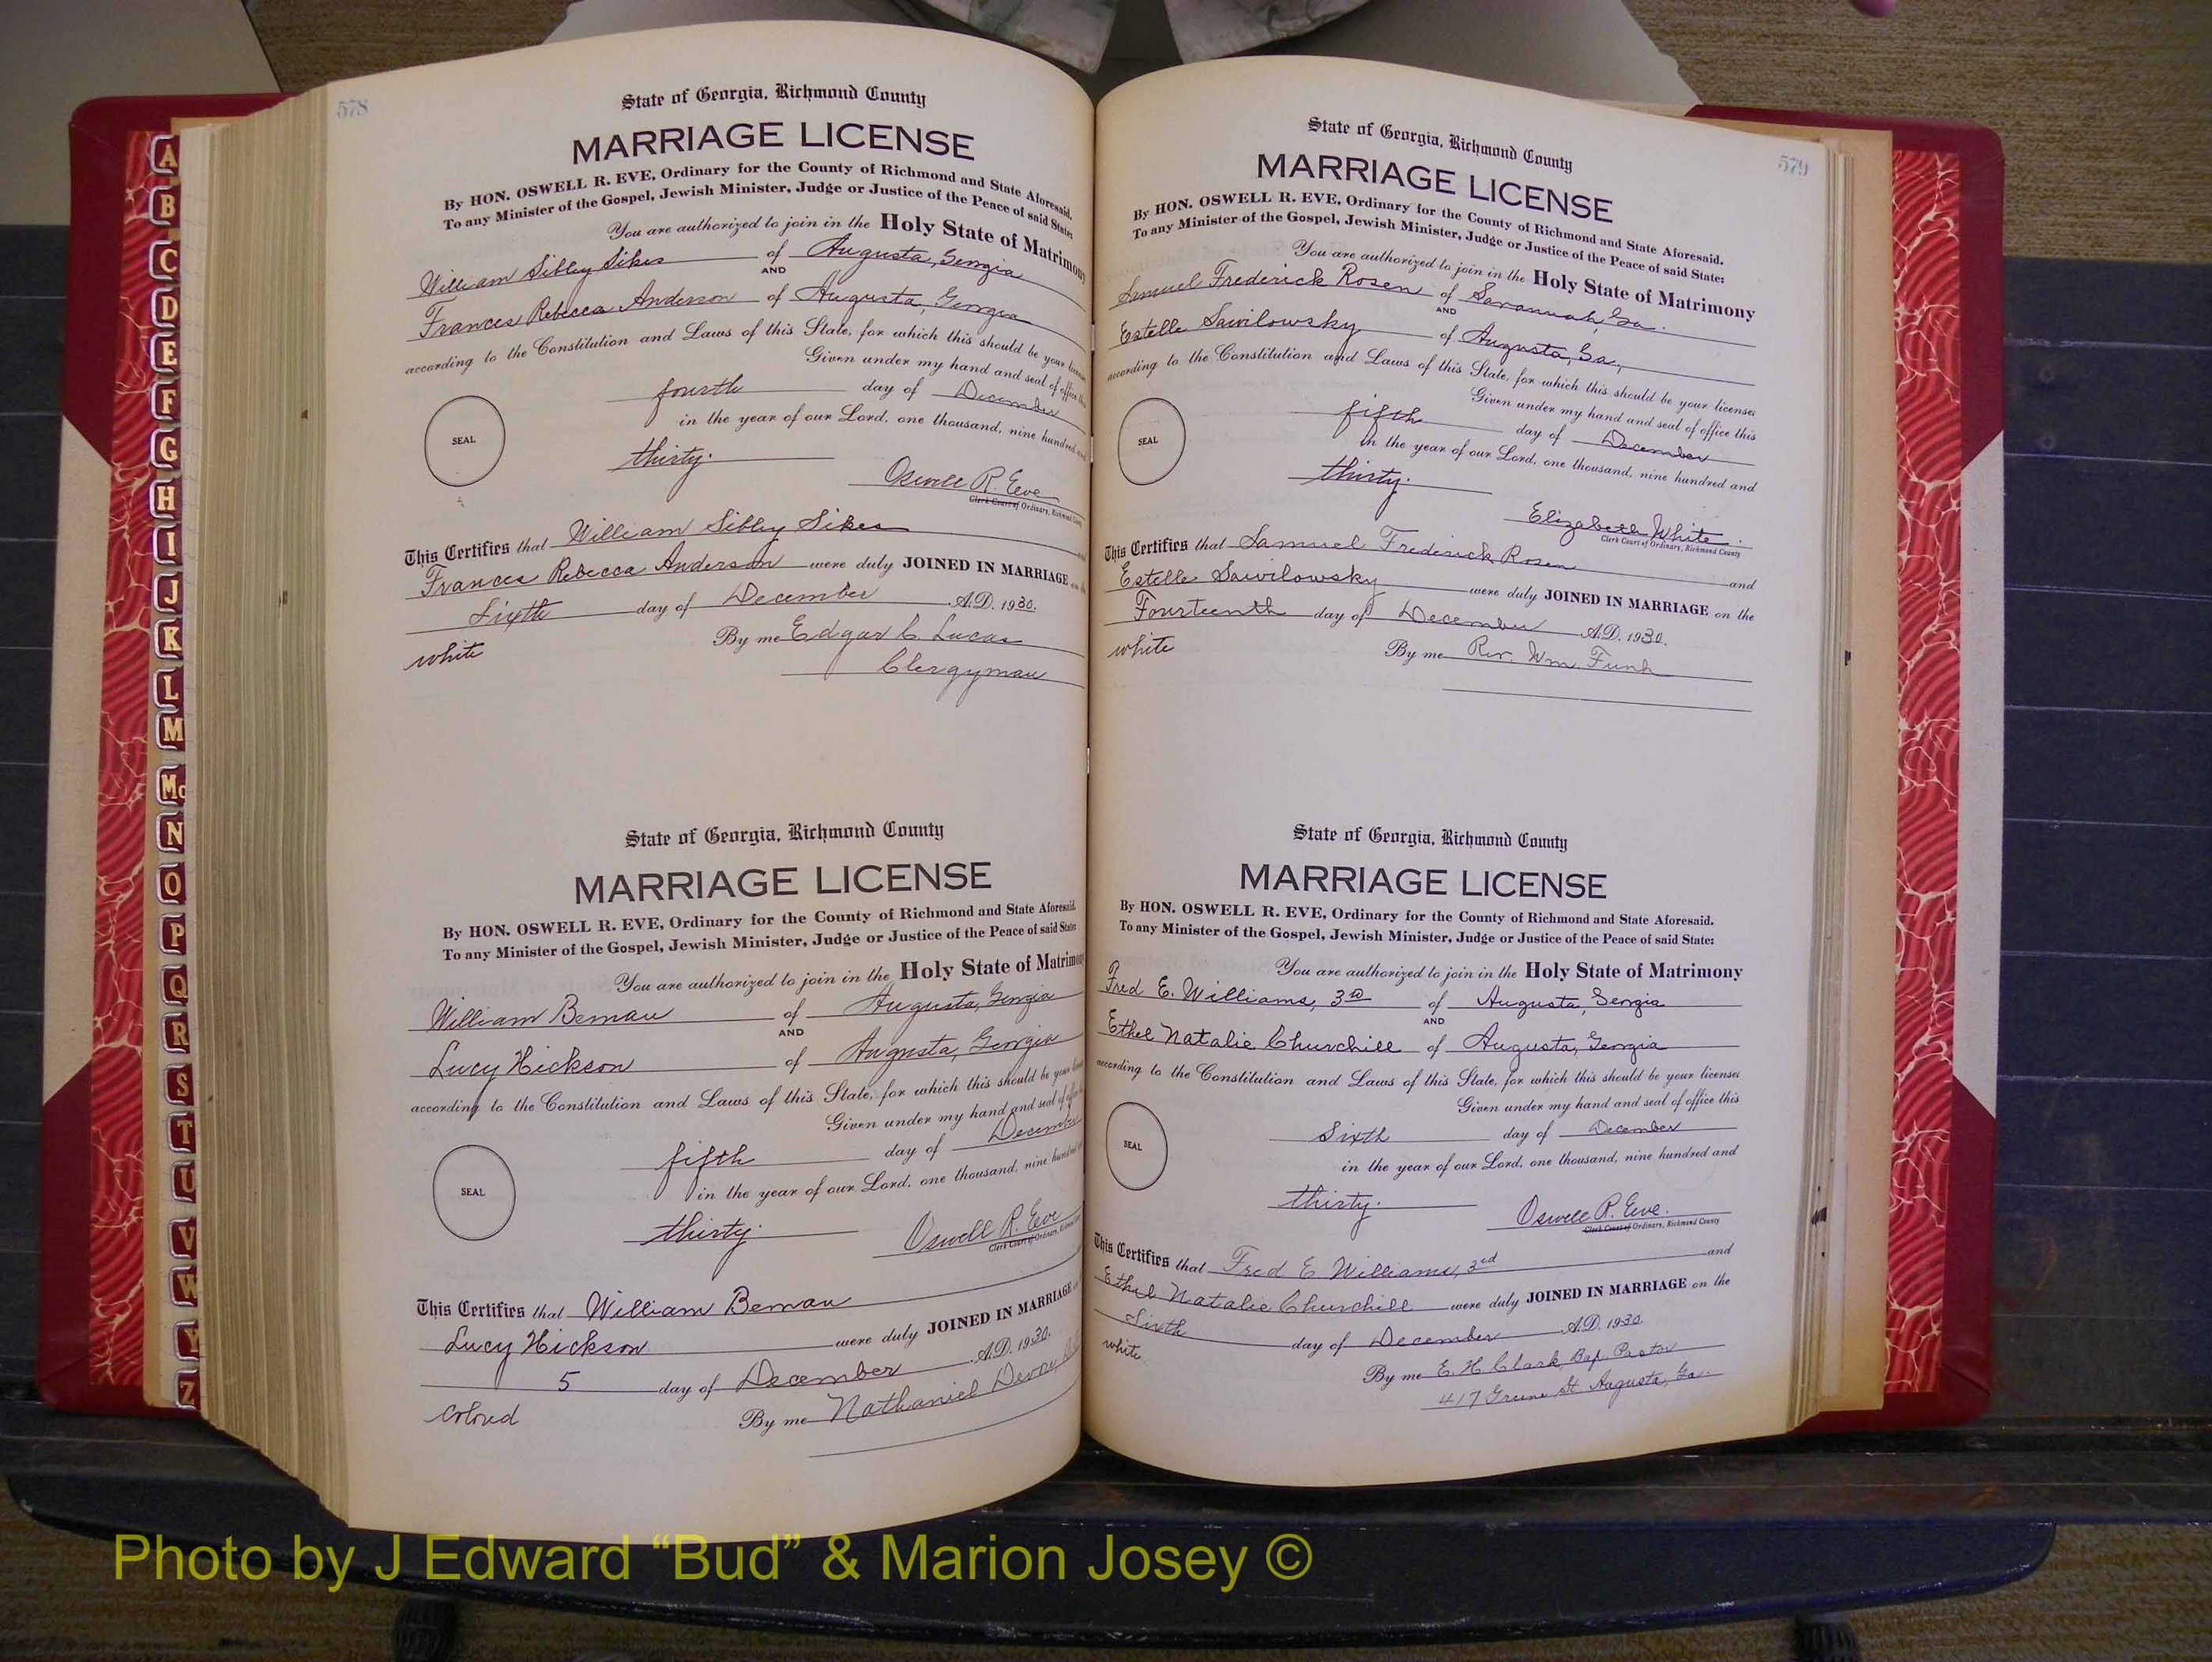 578
State of Georgia, Richmond County
MARRIAGE LICENSE
By HON. OSWELL R. EVE, Ordinary for the County of Richmond and State Aforesaid.
To any Minister of the Gospel, Jewish Minister, Judge or Justice of the Peace of said State:
You are authorized to join in the Holy State of Matrimony
William Sibley Sikes of Augusta, Georgia
AND
Frances Rebecca Anderson of Augusta, Georgia
according to the Constitution and Laws of this State, for which this should be your license
Given under my hand and seal of office this
fourth day of December
SEAL
in the year of our Lord, one thousand, nine hundred
thirty.
Oswell R. Eve
Clerk Court of Ordinary, Richmond County
This Certifies that William Sibley Sikes
Frances Rebecca Anderson were duly JOINED IN MARRIAGE on
Sixth day of December A.D. 1930.
white
By me Edgar C. Lucas
Clergyman
State of Georgia, Richmond County
MARRIAGE LICENSE
By HON. OSWELL R. EVE, Ordinary for the County of Richmond and State Aforesaid.
To any Minister of the Gospel, Jewish Minister, Judge or Justice of the Peace of said State:
You are authorized to join in the Holy State of Matrimony
William Beman of Augusta, Georgia
AND
Lucy Hickson of Augusta, Georgia
according to the Constitution and Laws of this State, for which this should be your
Given under my hand and seal of office
fifth day of December
SEAL
in the year of our Lord, one thousand, nine hundred
thirty.
Oswell R. Eve
Clerk Court of Ordinary,
This Certifies that William Beman
Lucy Hickson were duly JOINED IN MARRIAGE
5 day of December A.D. 1930.
colored
By me Nathaniel
579
State of Georgia, Richmond County
MARRIAGE LICENSE
By HON. OSWELL R. EVE, Ordinary for the County of Richmond and State Aforesaid.
To any Minister of the Gospel, Jewish Minister, Judge or Justice of the Peace of said State:
You are authorized to join in the Holy State of Matrimony
Samuel Frederick Rosen of Savannah, Ga.
AND
Estelle Sawilowsky of Augusta, Ga.,
according to the Constitution and Laws of this State, for which this should be your licenses
Given under my hand and seal of office this
fifth day of December
SEAL
in the year of our Lord, one thousand, nine hundred and
thirty.
Elizabeth White.
Clerk Court of Ordinary, Richmond County
This Certifies that Samuel Frederick Rosen
Estelle Sawilowsky and
were duly JOINED IN MARRIAGE on the
Fourteenth day of December A.D. 1930.
white
By me Rev. Wm. Funk
State of Georgia, Richmond County
MARRIAGE LICENSE
By HON. OSWELL R. EVE, Ordinary for the County of Richmond and State Aforesaid.
To any Minister of the Gospel, Jewish Minister, Judge or Justice of the Peace of said State:
You are authorized to join in the Holy State of Matrimony
Fred E. Williams, 3rd of Augusta, Georgia
AND
Ethel Natalie Churchill of Augusta, Georgia
according to the Constitution and Laws of this State, for which this should be your licenses
Given under my hand and seal of office this
Sixth day of December
SEAL
in the year of our Lord, one thousand, nine hundred and
thirty.
Oswell R. Eve.
Clerk Court of Ordinary, Richmond County
This Certifies that Fred E Williams, 3rd and
Ethel Natalie Churchill were duly JOINED IN MARRIAGE on the
Sixth day of December A.D. 1930.
white
By me E. H. Clark, Bap. Pastor
417 Greene St. Augusta, Ga.
A
B
C
D
E
F
G
H
I
J
K
L
M
Mc
N
O
P
Q
R
S
T
U
V
W
Y
Z
Photo by J Edward “Bud” & Marion Josey ©